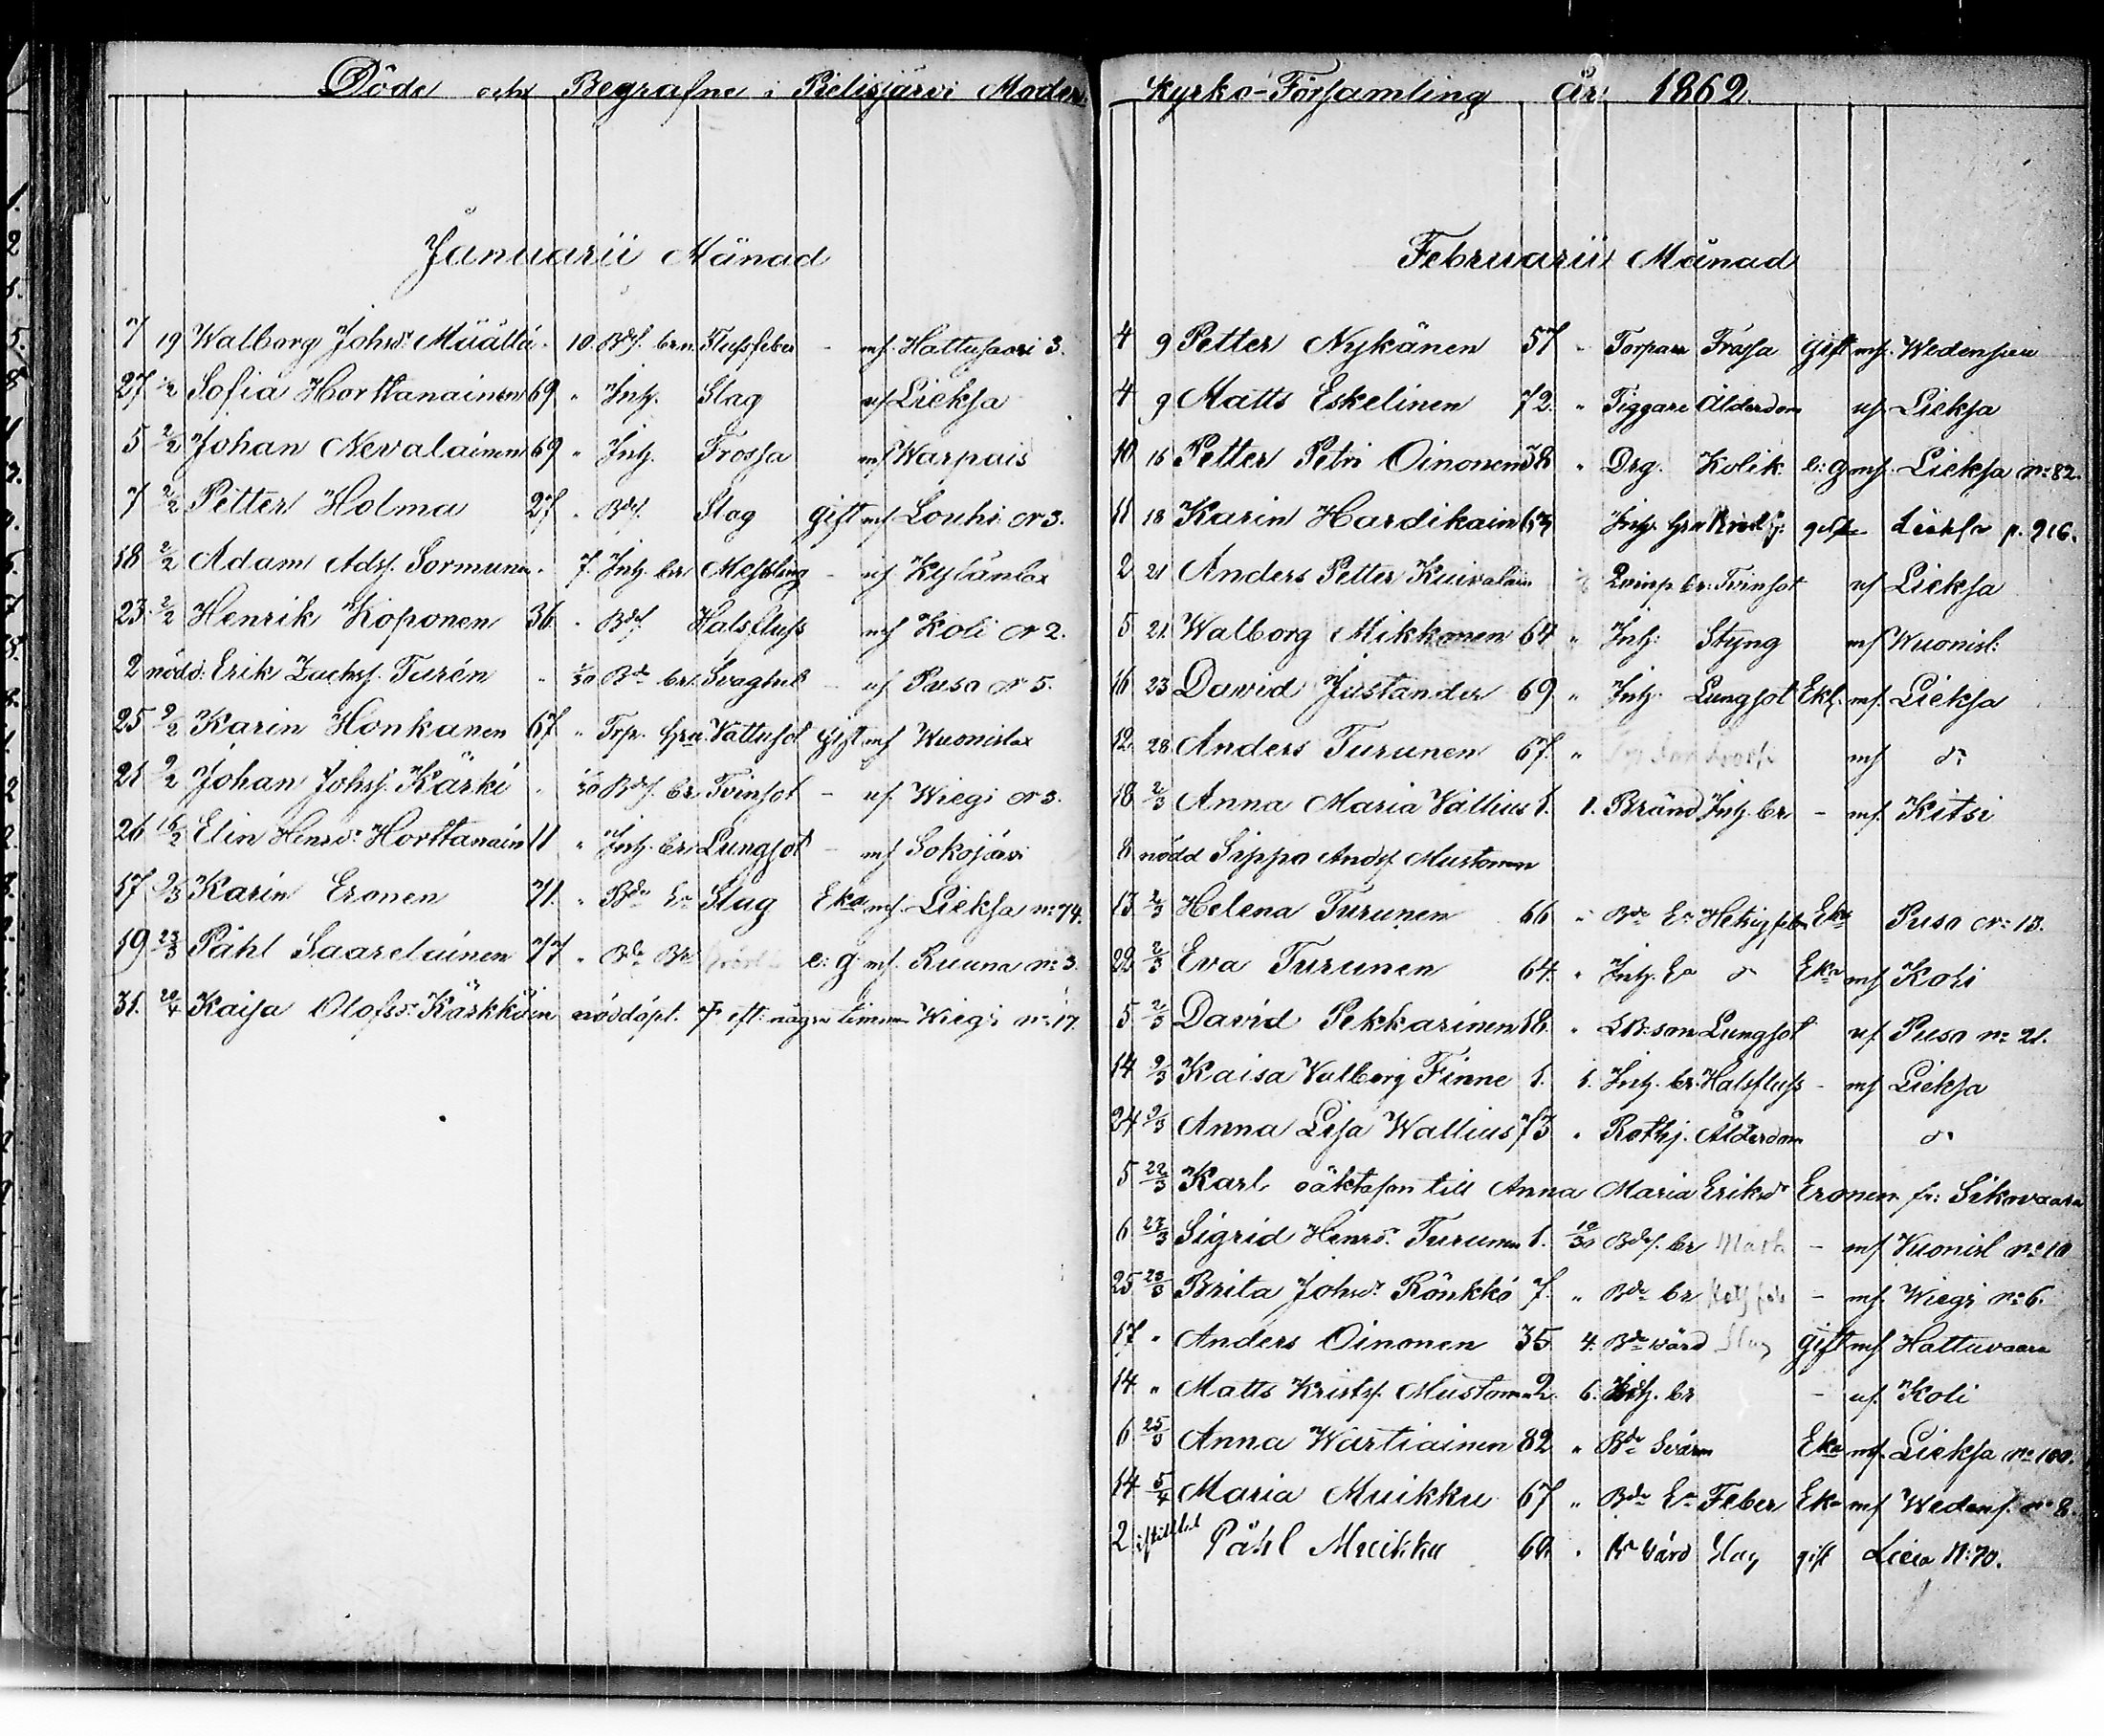 Döde och Begrafne i Pielisjärvi Moder
Januarii Månad
7 19 Walborg Johsdr. 10. Bdes. brn Flussfeber - mf. Hattusaari 3.
27 2/2 Sofia Horttanainen 69 " Inh. Slag uf Lieksa
5 2/2 Johan Nevalainen 69 " Inh. Trossa mf Warpais
7 2/2 Petter Holma 27 " Bds. Slag gift mf Louhi No 3.
18 2/2 Adam Ads. Sormunen - 7. Inh. br Messling - uf Kylänlax
23. 2/2 Henrik Koponen 36 " Bds. Halsfluss mf Koli No 2.
2 nödd: Erik Zachs. Turén - 1/30 Bde br. Svaghet - uf Puso No 5.
25 9/2 Karin Honkanen 67 " Torp. hru. Vattusot gift mf Wuonislax
21 9/2 Johan Johss. Kärki - Bds. br Tvinsot - uf. Wiegi No 3.
26 16/2 Elin Henrsdr. Horttanain 11 " Inh. br. Lungsot - mf Sokojärvi
17 Karin Eronen 71. " Bde Ea Slag Eka mf. Lieksa No 74.
19 23/3 Påhl Saarelainen 77 " Bde e: g mf. Ruuna No 3.
31. 20/4 Kaisa Olofsdr. Kärkkäin nöddöpt. † eft: några timmar Wiegi No 17.
Kyrko-Församling år 1862.
Februarii Månad
4 9 Petter Nykänen 57 " Torpare Trossa gift mf. Wedensuu
4 9 Matts Eskelinen 72. " Tiggare Ålderdom uf. Lieksa
10 16 Petter Petri Oinonen 38 " Drg. Kolik e: g mf. Lieksa No 82.
11 18 Karin Hardikain Inh. hru gift Lieksa p. 916.
2 21 Anders Petter Kuivalain br: Tvinsot uf Lieksa
5 21. Walborg Mikkonen 64 " Inh: Styng mf Wuonisl:
16 23 David Justander 69 " Inh. Lungsot Ekl. mf. Lieksa
12. 28 Anders Turunen 67. " mf do
18 2/3 Anna Maria Vallius 1. 1. Bränd Inh. br - mf. Kitsi
8 nödd Sippo Ands. Mustonen
13 2/3 Helena Turunen 66 " Bde Ea Hetsigfeber Eka Puso No 13.
22 2/3 Eva Turunen 64. " Inh. Ea do Eka mf Koli
5 2/3 David Pekkarinen 18. " son Lungsot uf. Puso No 21.
14 9/3 Kaisa Valborg Finne 1. 1. Inh. br. Halsfluss - mf Lieksa
24 9/3 Anna Lisa Wallius 73 " Rothj. Ålderdom do
5 22/3 Karl oäktason till Anna Maria Eriksdr Eronen fr: Sikovaara
6 Sigrid Henrsdr. Turunen 1. 10/30 Bds. br - mf Vuonisl No 10
25 23/3 Brita Johsdr. Rönkkö 7. " Bde br - mf. Wiegi No 6.
17 " Anders Oinonen 35 4. Bde värd Slag gift mf Hattuvaara
14 " Matts Krists. Mustonen 2. 6. Inh. br - uf. Koli
6 25/3 Anna Wartiainen 82 " Bde Svärm Eka mf. Lieksa No 100.
14 5/4 Maria Muikku 67 " Bde Ea Feber Eka mf Wedens. No 8.
2 Påhl Muikku 60. " Bde värd Slag gift No 70.